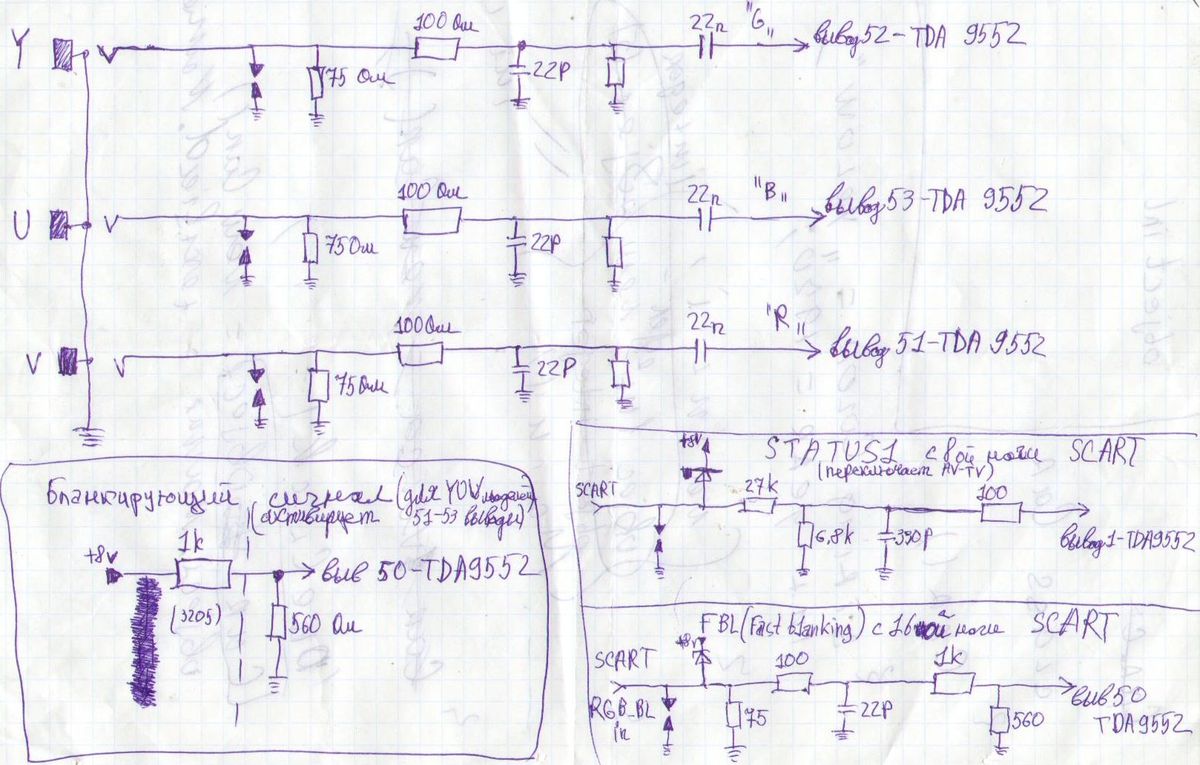 Y
100 Ом
22n
"G"
вывод 52 - TDA 9552
75 Ом
22P
U
100 Ом
22n
"B"
вывод 53 - TDA 9552
75 Ом
22P
V
100 Ом
22n
"R"
вывод 51 - TDA 9552
75 Ом
22P
Бланкирующий сигнал (для YUV
(активирует 51-53 выводы)
+8v
1k
выв 50 - TDA9552
(3205)
560 Ом
STATUS1 с 8ой ноги SCART
(переключает AV-TV)
+8v
SCART
27k
100
6,8k
390P
вывод 1 - TDA9552
FBL (Fast blanking) с 16ой ноги SCART
+8v
SCART
100
1k
RGB_BL
in
75
22P
560
выв 50
TDA9552